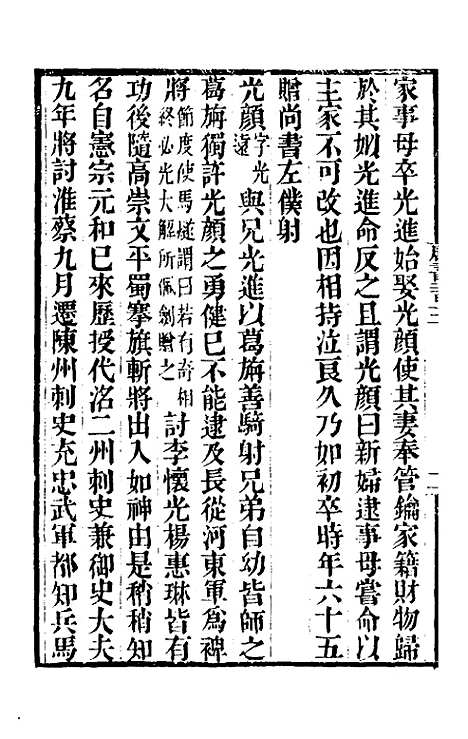 家事母卒光進始娶光顏使其妻奉管鑰家籍財物歸
於其姒光進命反之且謂光顏曰新婦逮事母嘗命以
主家不可改也因相持泣哀久乃如初卒時年六十五
贈尚書左僕射
光顏字光遠與兄光進以葛旃善騎射兄弟自幼皆師之
葛旃獨許光顏之勇健已不能逮及長從河東軍爲裨
將節度使馬燧謂曰若有奇相終必光大解所佩劍贈之討李懷光楊惠琳皆有
功後隨高崇文平蜀搴旗斬將出入如神由是稍稍知
名自憲宗元和已來歷授代洺二州刺史兼御史大夫
九年將討淮蔡九月遷陳州刺史充忠武軍都知兵馬